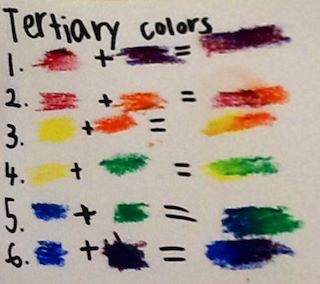 Tertiary colors
1. + =
2. + =
3. + =
4. + =
5. + =
6. + =